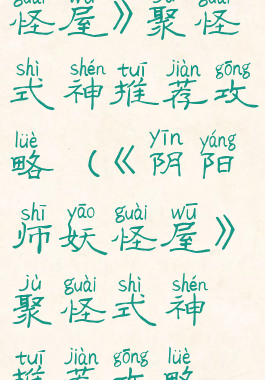 guài wū jù guài
怪屋》聚怪
shì shén tuī jiàn gōng
式神推荐攻
lüè yīn yáng
略（《阴阳
shī yāo guài wū
师妖怪屋》
jù guài shì shén
聚怪式神
tuī jiàn gōng lüè
推荐攻略